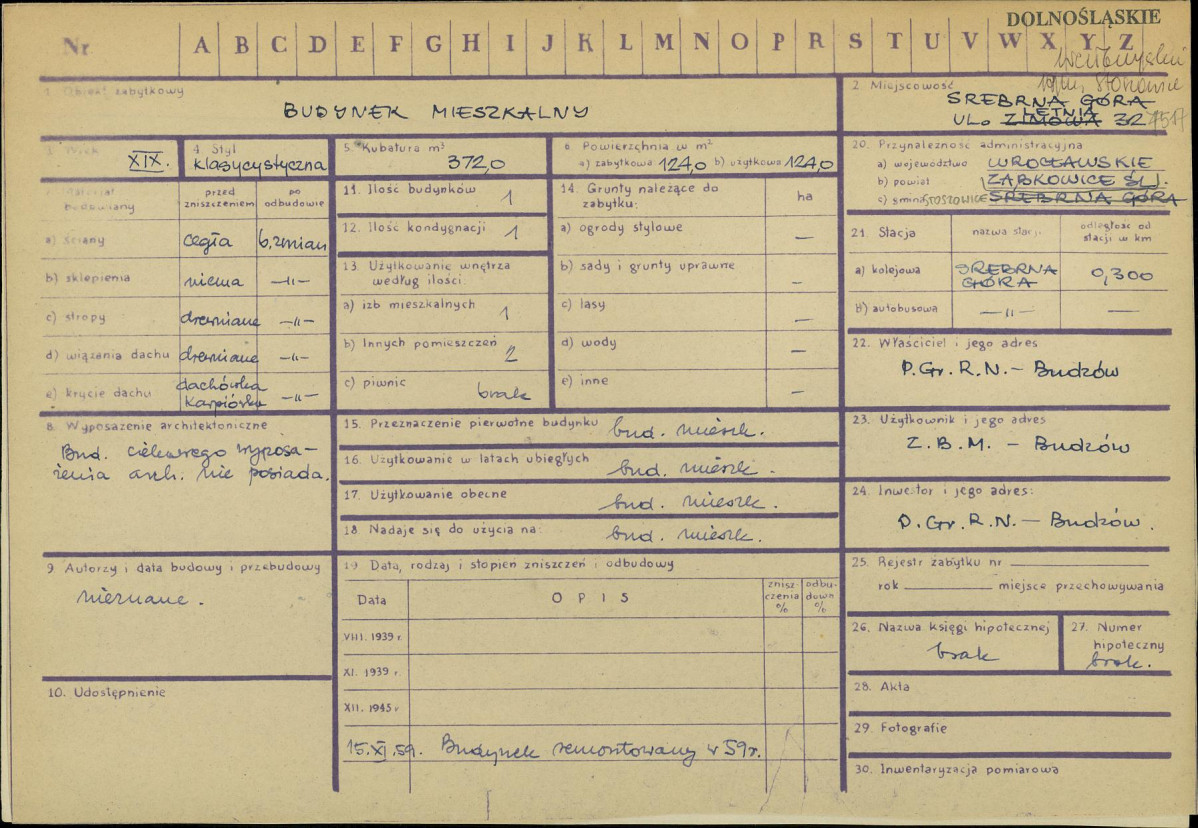 DOLNOŚLĄSKIE
Nr A B C D E F G H I J K L M N O P R S T U V W X Y Z
gm. Stoszowice
1. Obiekt zabytkowy
BUDYNEK MIESZKALNY
2. Miejscowość
SREBRNA GÓRA
LETNIA
UL. ZIMOWA 32
3. Wiek
XIX.
4. Styl
klasycystyczna
5. Kubatura m³
372,0
6. Powierzchnia w m²
a) zabytkowa 124,0 b) użytkowa 124,0
7. Materiał budowlany
przed zniszczeniem
po odbudowie
a) ściany cegła b. zmian
b) sklepienia niema —„—
c) stropy drewniane —„—
d) wiązania dachu drewniane —„—
e) krycie dachu dachówka karpiówka —„—
8. Wyposażenie architektoniczne
Bud. ciekawego wyposa-
żenia arch. nie posiada.
9. Autorzy i data budowy i przebudowy
nieznane.
10. Udostępnienie
11. Ilość budynków 1
12. Ilość kondygnacji 1
13. Użytkowanie wnętrza
według ilości:
a) izb mieszkalnych 1
b) Innych pomieszczeń 2
c) piwnic brak
14. Grunty należące do
zabytku: ha
a) ogrody stylowe —
b) sady i grunty uprawne —
c) lasy —
d) wody —
e) inne —
15. Przeznaczenie pierwotne budynku bud. mieszk.
16. Użytkowanie w latach ubiegłych bud. mieszk.
17. Użytkowanie obecne bud. mieszk.
18. Nadaje się do użycia na: bud. mieszk.
19. Data, rodzaj i stopień zniszczeń i odbudowy
Data OPIS znisz-czenia % odbu-down %
VIII. 1939 r.
XI. 1939 r.
XII. 1945 r.
15.XI.59. Budynek remontowany w 59 r.
20. Przynależność administracyjna
a) województwo WROCŁAWSKIE
b) powiat ZĄBKOWICE ŚL.
c) gmina STOSZOWICE SREBRNA GÓRA
21. Stacja nazwa stacji odległość od stacji w km
a) kolejowa SREBRNA GÓRA 0,300
b) autobusowa —„— —
22. Właściciel i jego adres
P.Gr.R.N. – Budzów
23. Użytkownik i jego adres
Z.B.M. – Budzów
24. Inwestor i jego adres:
P.Gr.R.N. – Budzów.
25. Rejestr zabytku nr
rok miejsce przechowywania
26. Nazwa księgi hipotecznej
brak
27. Numer
hipoteczny
brak.
28. Akta
29. Fotografie
30. Inwentaryzacja pomiarowa